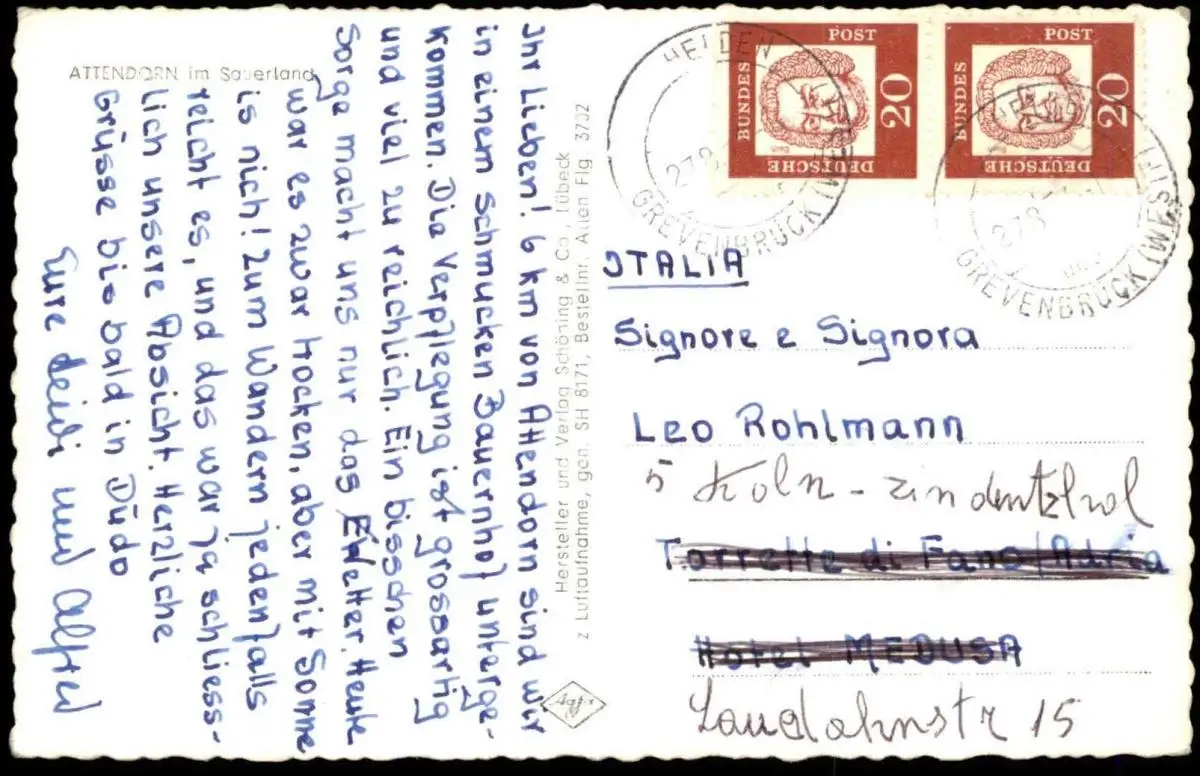 ATTENDORN im Sauerland
Ihr Lieben! 6 km von Attendorn sind wir
in einem schmucken Bauernhof unterge-
kommen. Die Verpflegung ist grossartig
und viel zu reichlich. Ein bisschen
Sorge macht uns nur das Wetter. Heute
war es zwar trocken, aber mit Sonne
is nich! Zum Wandern jedenfalls
reicht es, und das war ja schliess-
lich unsere Absicht. Herzliche
Grüsse bis bald in Düdo
Eure und
Hersteller und Verlag Schöning & Co., Lübeck
z Luftaufnahme, gen. SH 8171, Bestellnr. Atten Flg 3702
DEUTSCHE
BUNDES
POST
20
DEUTSCHE
BUNDES
POST
20
HELDEN
278
GREVENBRÜCK (WESTF)
HELDEN
278
GREVENBRÜCK (WESTF)
ITALIA
Signore e Signora
Leo Rohlmann
5 Köln -
Torrette di Fano/Adria
Hotel MEDUSA
15